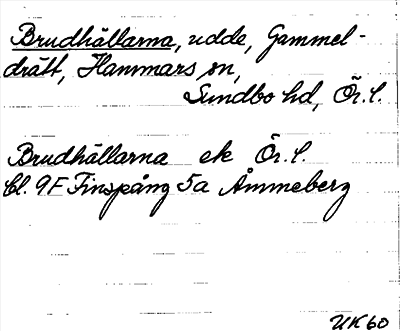 Brudhällarna, udde, Gammel-
drätt, Hammars sn,
Sundbo hd, Ör. l.
Brudhällarna ek Ör. l.
Bl. 9F Finspång 5a Åmmeberg
UK 60